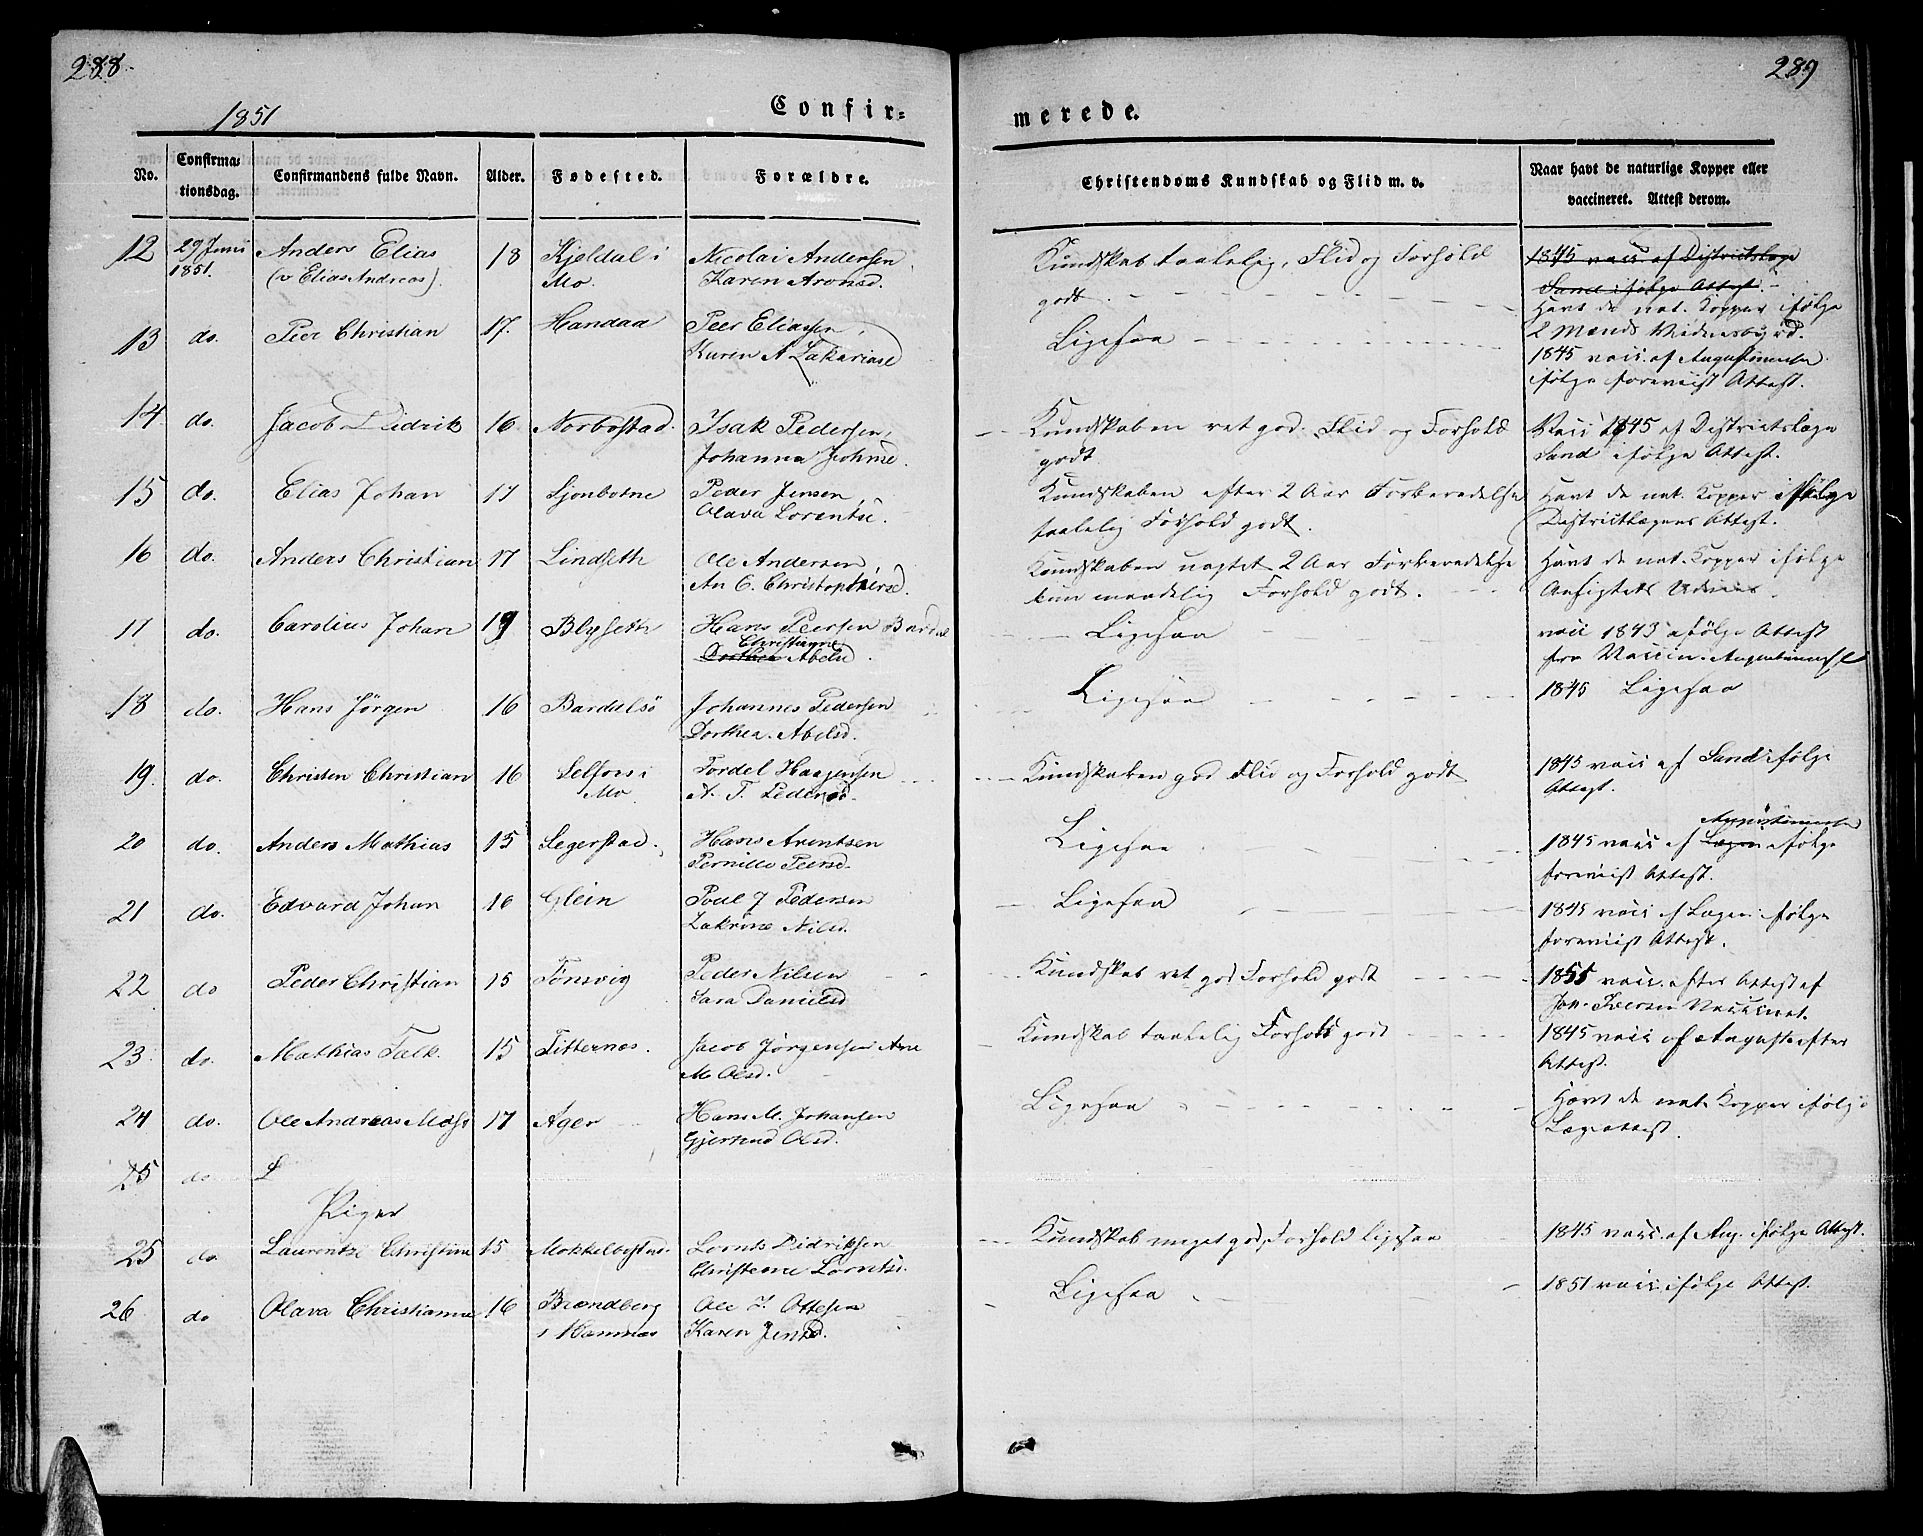 288
289
1851
Confir-
merede.
No.
Confirma-
tionsdag.
Confirmandens fulde Navn.
Alder.
Fødested.
Forældre.
Christendoms Kundskab og Flid m. v.
Naar havt de naturlige Kopper eller
vaccineret. Attest derom.
12 29 Juni Anders Elias 18 Kjeldal i Nicolai Andersen, Kundskab taalelig, Flid og Forhold 1845 vacc af Districtslæge
1851. (v Elias Andreas). Mo. Karen Aronsd. godt. Sand ifølge Attest.
Havt de nat. Kopper ifølge
2 Mænds Vidnesbyrd.
13 do. Peer Christian 17. Handaa Peer Eliassen, Ligesaa 1845 vacc. af
Karen A Zakariasd ifølge foreviist Attest.
14 do. Jacob Didrik 16 Norbostad. Isak Pedersen, Kundskaben ret god. Flid og Forhold Vacc 1845 af Districtslæge
Johanna Johnsd. godt. Sand ifølge Attest.
15 do. Elias Johan 17 Sjonbotne Peder Jensen, Kundskaben efter 2 Aar Forberedelse Havt de nat. Kopper ifølge
Olava Lorentsd. taalelig Forhold godt. Districtlægens Attest.
16 do. Anders Christian 17 Lindseth Ole Andersen, Kundskaben uagtet 2 Aar Forberedelse Havt de nat. Kopper ifølge
An C. Christophersd. kun maadelig Forhold godt. Ansigtets Udviis.
17 do. Carolius Johan 19 Blyseth Hans Peersen Bardal Ligesaa vacc 1843 ifølge Attest
Christianne
Dorthea Abelsd. fra Vaccin.
18 do. Hans Jørgen 16 Bardalsö Johannes Pedersen Ligesaa 1845 Ligesaa
Dorthea Abelsd.
19. do. Christen Christian 16 Selfors i Tordel Haagensen Kundskaben god Flid og Forhold godt 1845 vacc af Sand ifølge
Mo A. T. Pedersd. Attest.
20 do. Anders Mathias 15 Segerstad. Hans Arentsen Ligesaa 1845 vacc af Lægen ifølge
Pernille Peersd. foreviist Attest.
21 do. Edvard Johan 16 Glein Poul J Pedersen Ligesaa 1845 vacc af Lægen ifølge
Zakrine Nilsd. foreviist Attest.
22 do Peder Christian 15 Tønsvig Peder Nilsen Kundskab ret god Forhold godt 1855 vacc. efter Attest af
Sara Danielsd Vaccinat.
23. do. Mathias Falk. 15 Titternes. Jacob Jørgensen Ane Kundskab taalelig Forhold godt 1845 vacc af August efter
M Olsd. Attest.
24 do. Ole Andreas Moses 17 Ager Hans M. Johansen Ligesaa Havt de nat. Kopper ifølge
Gjertrud Olsd. Lægeattest.
25 do L
Piger
25 do. Laurentse Christine 15 Mokkelbostad. Lornts Didriksen Kundskab meget god, Forhold Ligesaa 1845 vacc. af Aug. ifølge Attest.
Christenne Lorntsd.
26 do Olava Christianna 16 Brendberg Ole J. Ottesen Ligesaa 1851 vacc. ifølge Attest.
i Hamnes Karen Jensd.